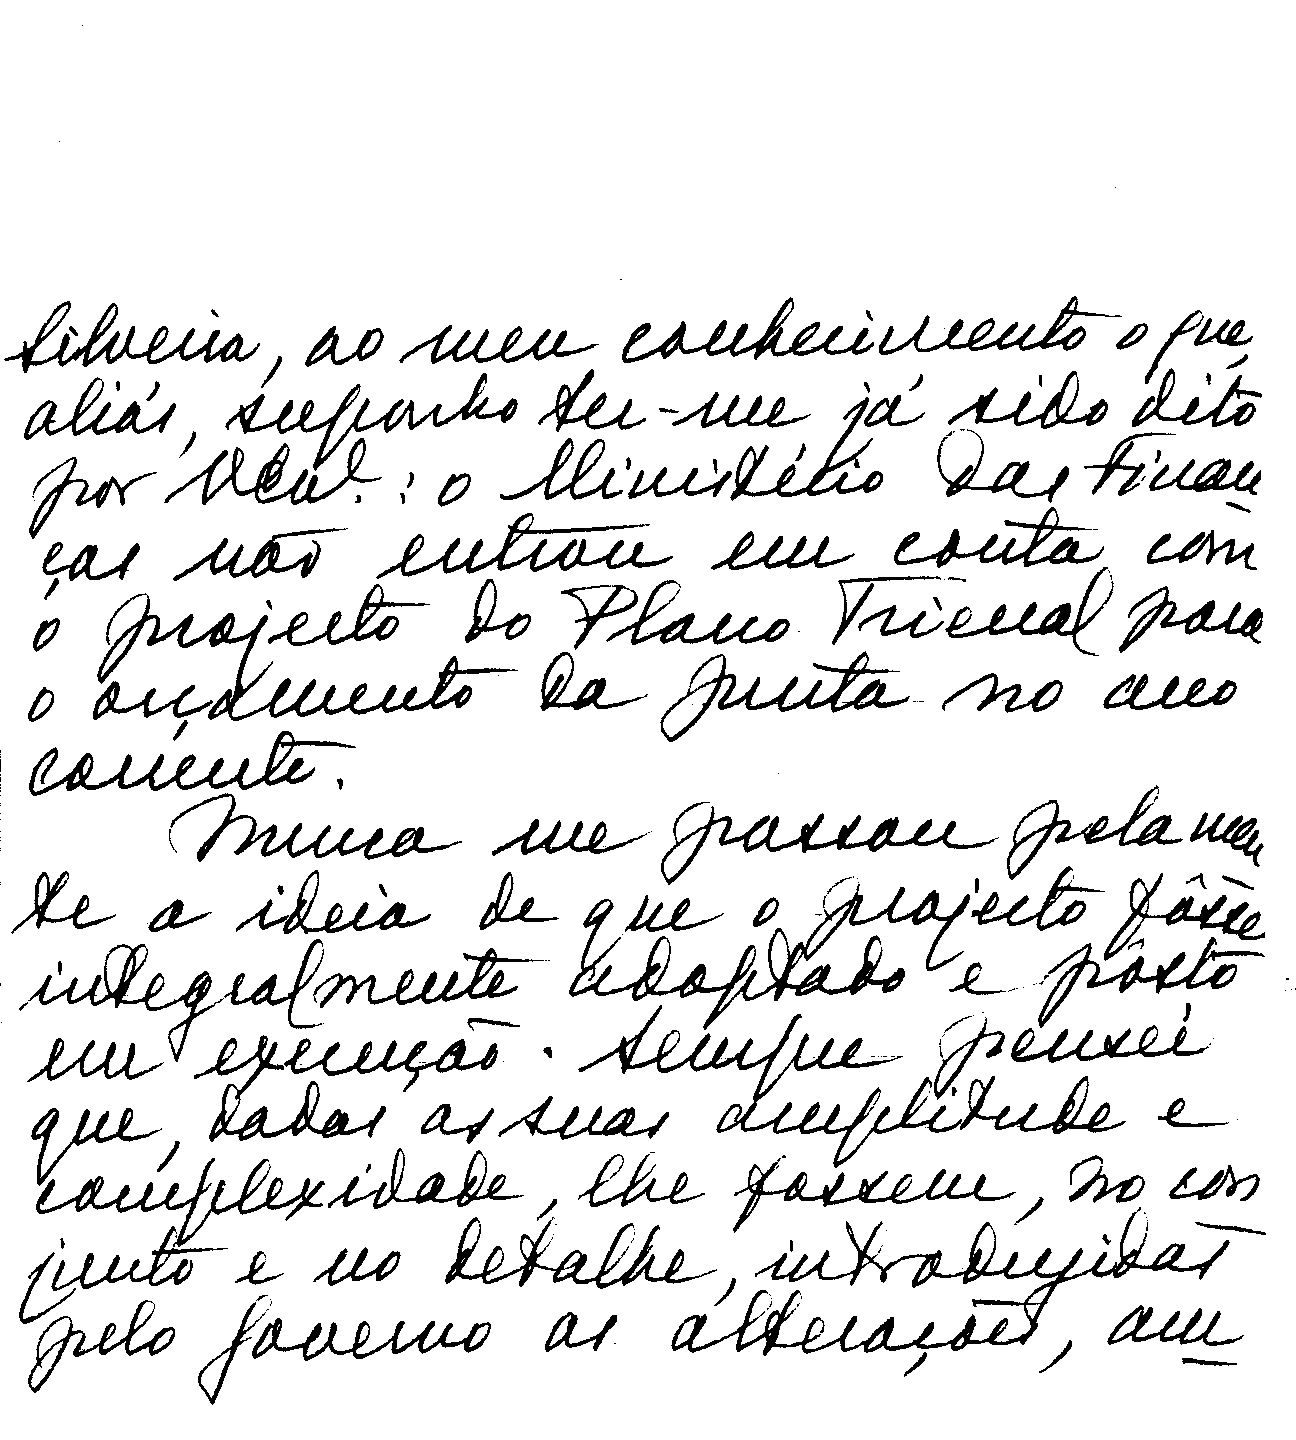 Silveira, ao meu conhecimento o que,
aliás, suponho ter-me já sido dito
por : o Ministério das Finan
ças não entrou em conta com
o projecto do Plano Trienal para
o orçamento da Junta no ano
corrente.
Nunca me passou pela men
te a ideia de que o projecto fôsse
integralmente adoptado e pôsto
em execução. Sempre pensei
que, dadas as suas amplitude e
complexidade, lhe fossem, no con
junto e no detalhe, introduzidas
pelo Governo as alterações, am